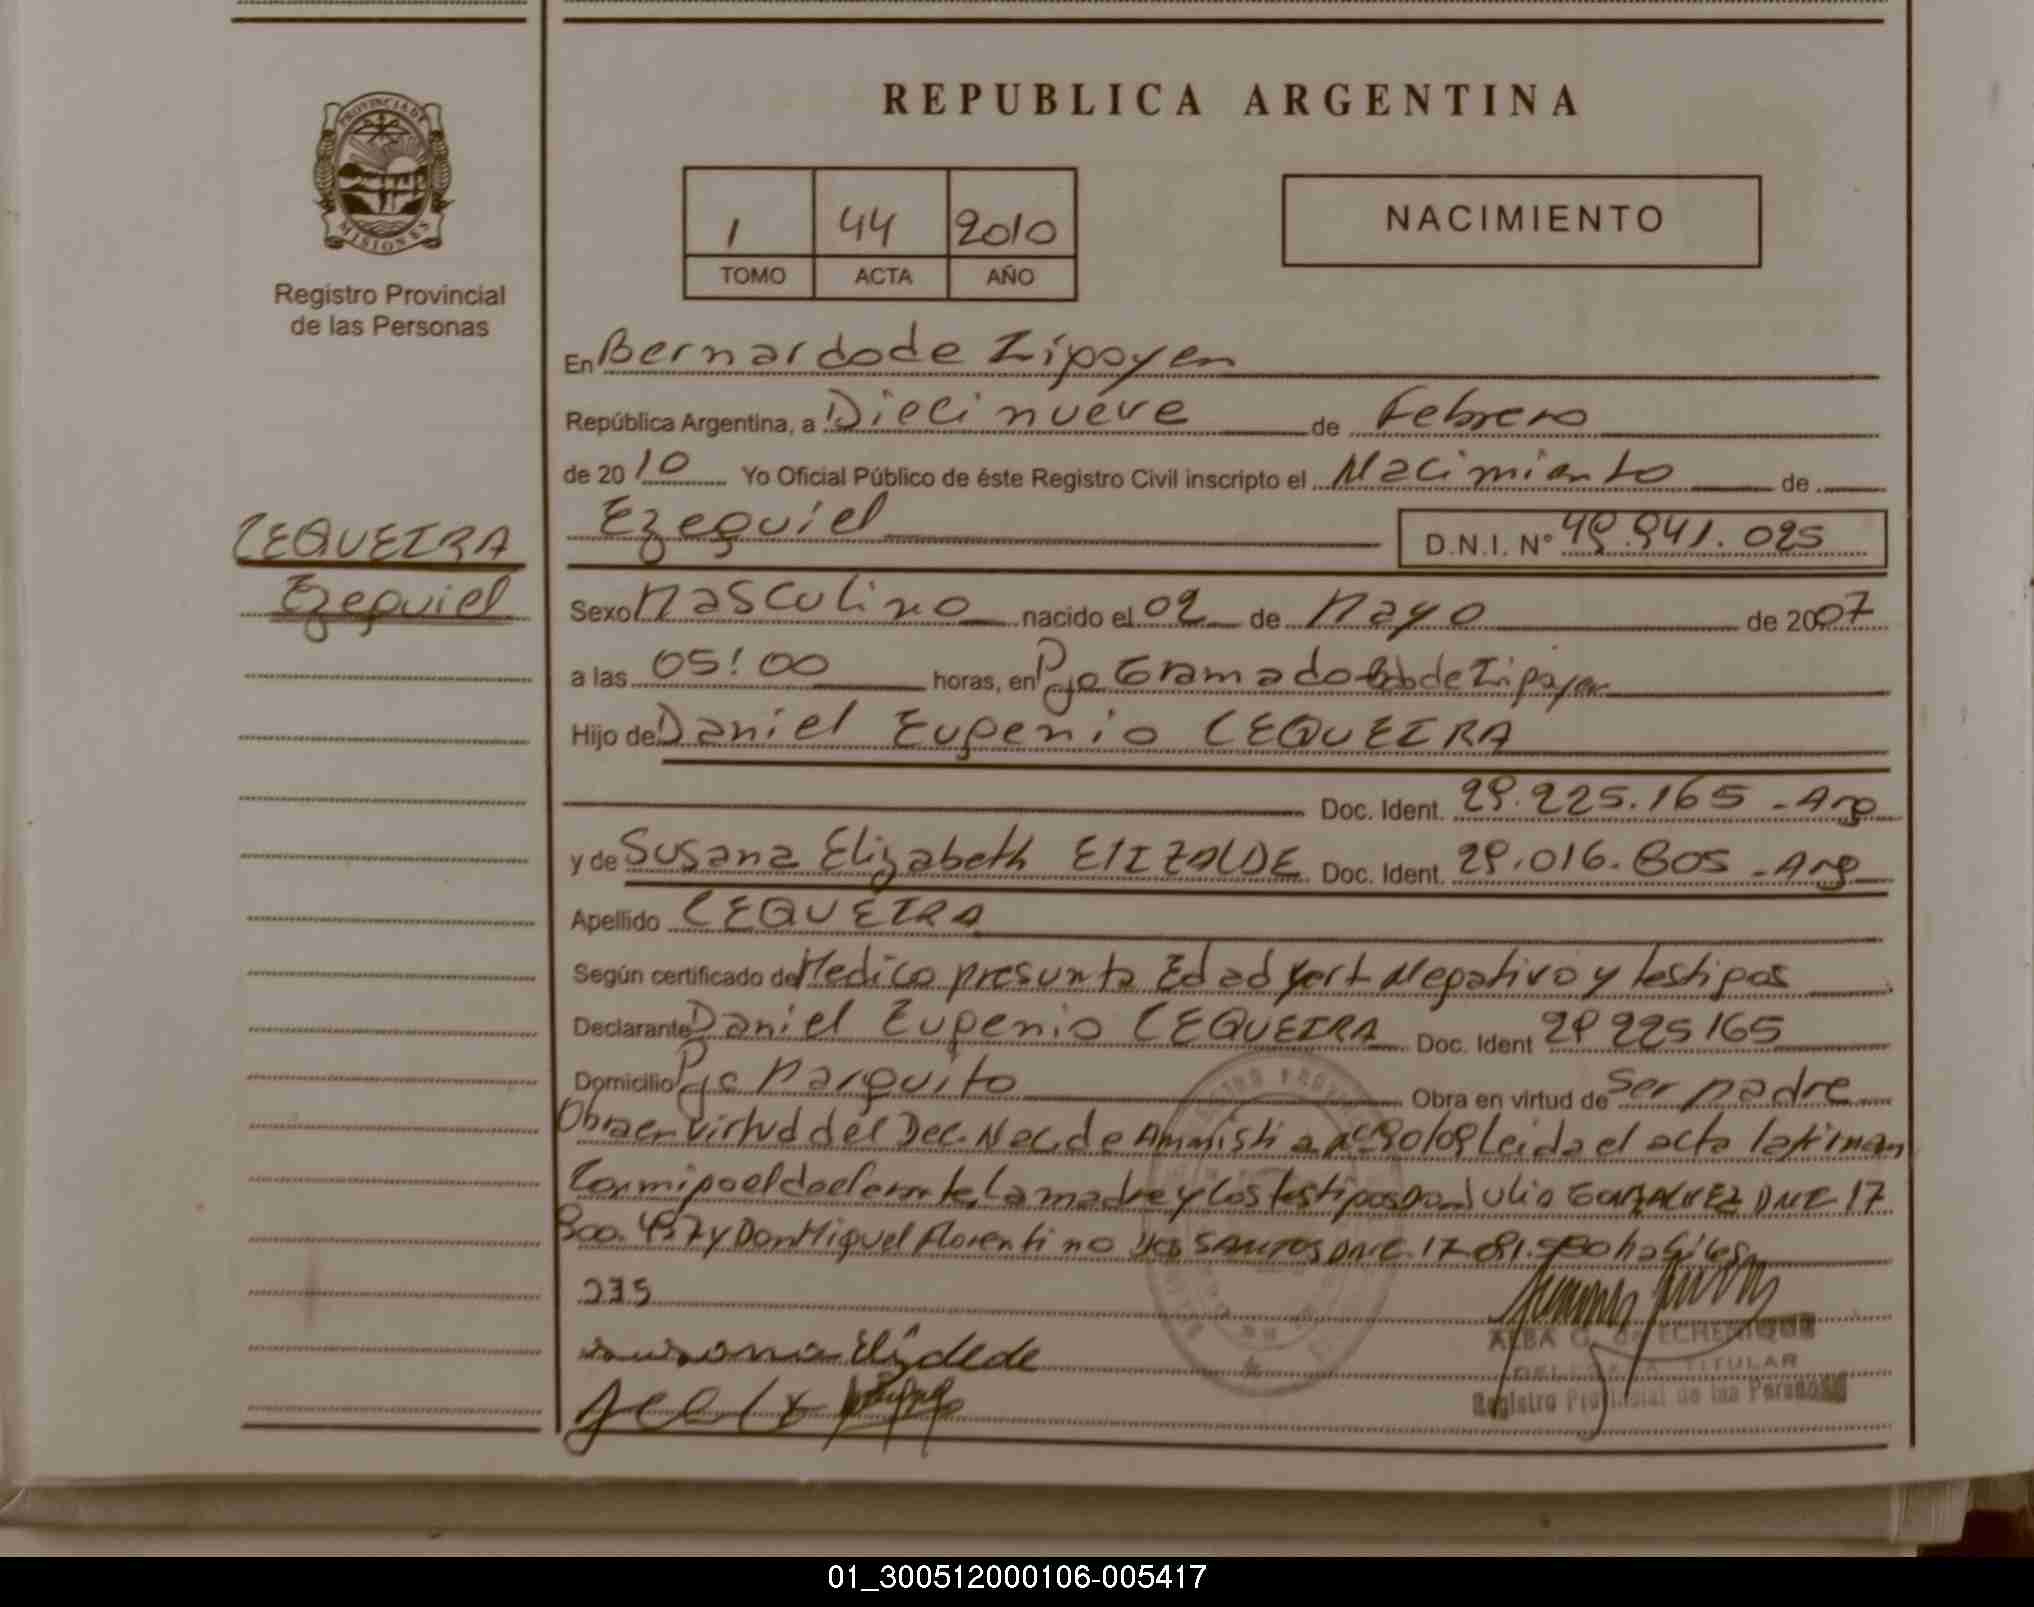 REPUBLICA ARGENTINA
PROVINCIA DE MISIONES
Registro Provincial
de las Personas
1 44 2010
TOMO ACTA AÑO
NACIMIENTO
En Bernardo de Irigoyen
República Argentina, a Dieci nueve de Febrero
de 2010 Yo Oficial Público de éste Registro Civil inscripto el Nacimiento de
Ezequiel D.N.I. N° 49.941.025
CEQUEIRA
Ezequiel
Sexo Masculino nacido el 02 de Mayo de 2007
a las 05:00 horas, en Pje Gramado Bdo de Irigoyen
Hijo de Daniel Eugenio CEQUEIRA
Doc. Ident. 29.225.165 - Arg
y de Susana Elizabeth ELIZALDE Doc. Ident. 29.016.805 - Arg
Apellido CEQUEIRA
Según certificado de Medico presunta Edad y cert Negativo y testigos
Declarante Daniel Eugenio CEQUEIRA Doc. Ident 29 225 165
Domicilio Pje Marquito Obra en virtud de ser padre
Obra en virtud del Dec. Nac. de Amnistia n° 90/09 Leida el acta la firman
Conmigo el declarante, la madre y los testigos Don Julio GONZALVEZ DNI 17
800. 457 y Don Miguel Florentino DOS SANTOS DNI. 17 habiles
ALBA G. de ECHENIQUE
DELEGADA TITULAR
Registro Provincial de las Personas
01_300512000106-005417